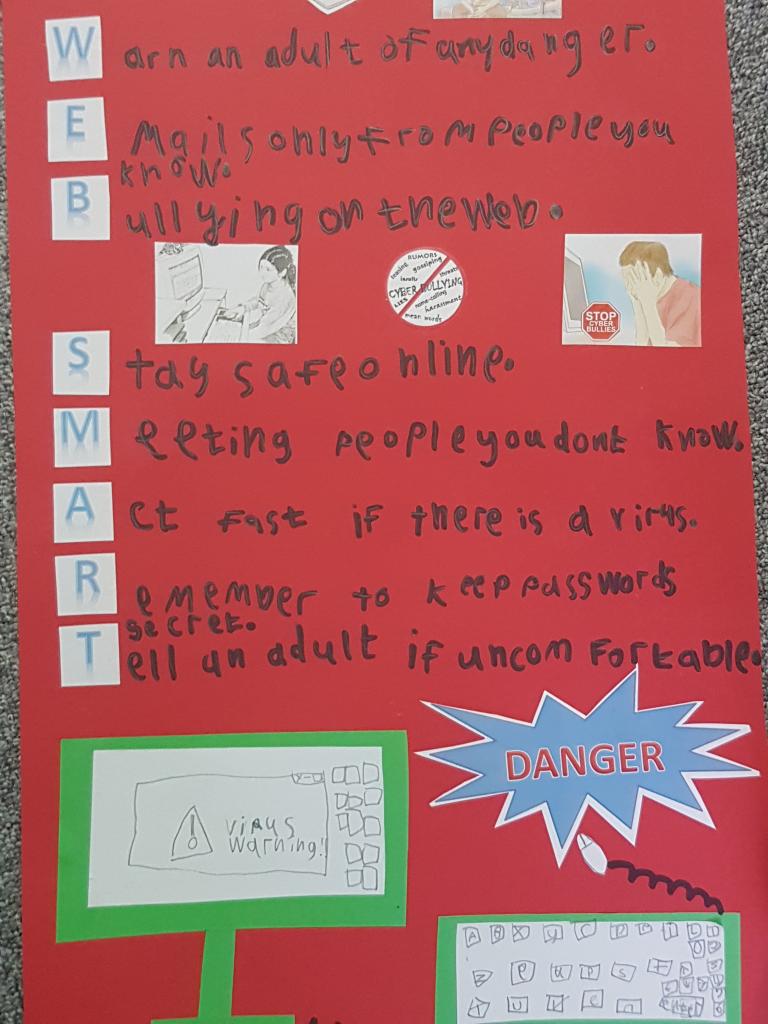 Warn an adult of any danger.
E Mails only from people you
know.
Bullying on the web.
RUMORS
gossiping
teasing
threats
insults
CYBER BULLYING
LIES
name-calling
harassment
mean words
STOP
CYBER
BULLIES
Stay safe online.
Meeting people you dont know.
Act fast if there is a virus.
Remember to keep passwords
secret.
Tell an adult if uncomfortable.
DANGER
!
virus
warning!